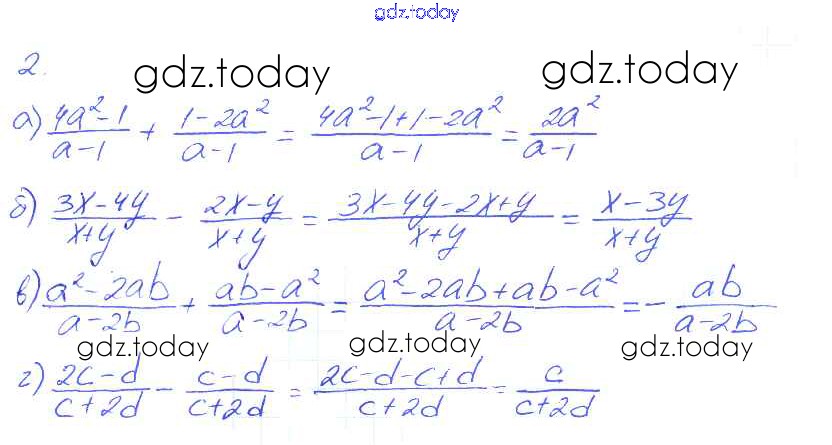 gdz.today
2.
gdz.today gdz.today
а) (4a²-1)/(a-1) + (1-2a²)/(a-1) = (4a²-1+1-2a²)/(a-1) = 2a²/(a-1)
б) (3x-4y)/(x+y) - (2x-y)/(x+y) = (3x-4y-2x+y)/(x+y) = (x-3y)/(x+y)
в) (a²-2ab)/(a-2b) + (ab-a²)/(a-2b) = (a²-2ab+ab-a²)/(a-2b) = - ab/(a-2b)
gdz.today gdz.today gdz.today
г) (2c-d)/(c+2d) - (c-d)/(c+2d) = (2c-d-c+d)/(c+2d) = c/(c+2d)